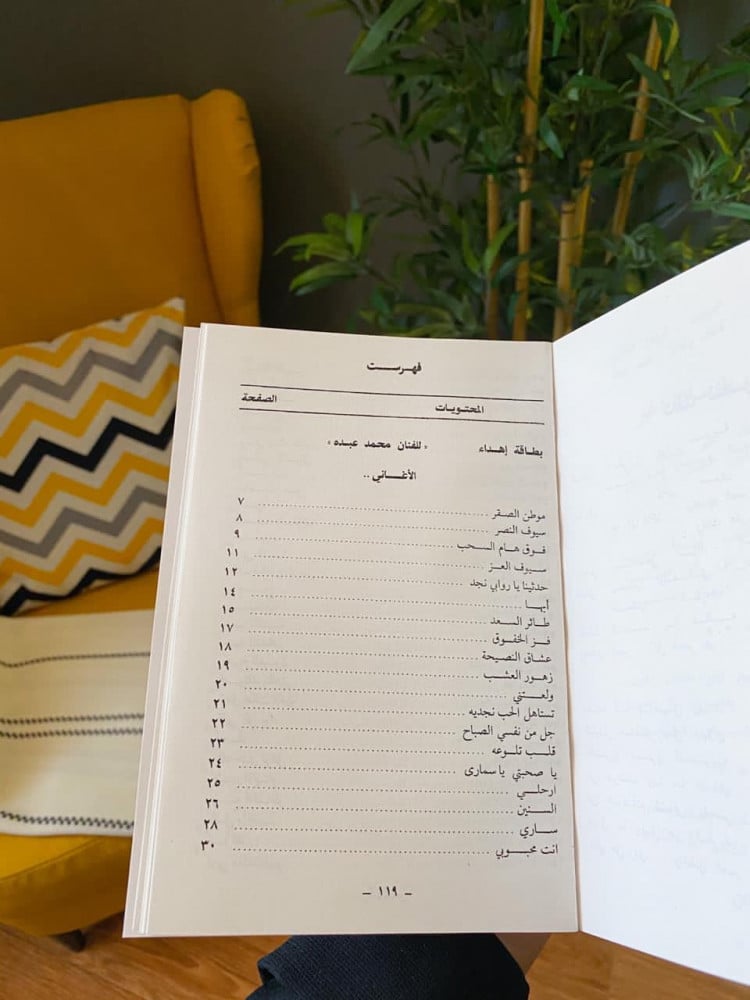 فهرست
المحتويات الصفحة
بطاقة إهداء «للفنان محمد عبده»
الأغاني ..
موطن الصقر ٧
سيوف النصر ٨
فوق هام السحب ٩
سيوف العز ١١
حدثينا يا روابي نجد ١٢
أبها ١٤
طائر السعد ١٥
فز الخفوق ١٧
عشاق النصيحة ١٨
زهور العشب ١٩
ولعتني ٢٠
تستاهل الحب نجديه ٢١
جل من نفسي الصباح ٢٢
قلب تلوعه ٢٣
يا صحبتي ياسمارى ٢٤
ارحلي ٢٥
السنين ٢٦
ساري ٢٨
انت محبوبي ٣٠
– ١١٩ –